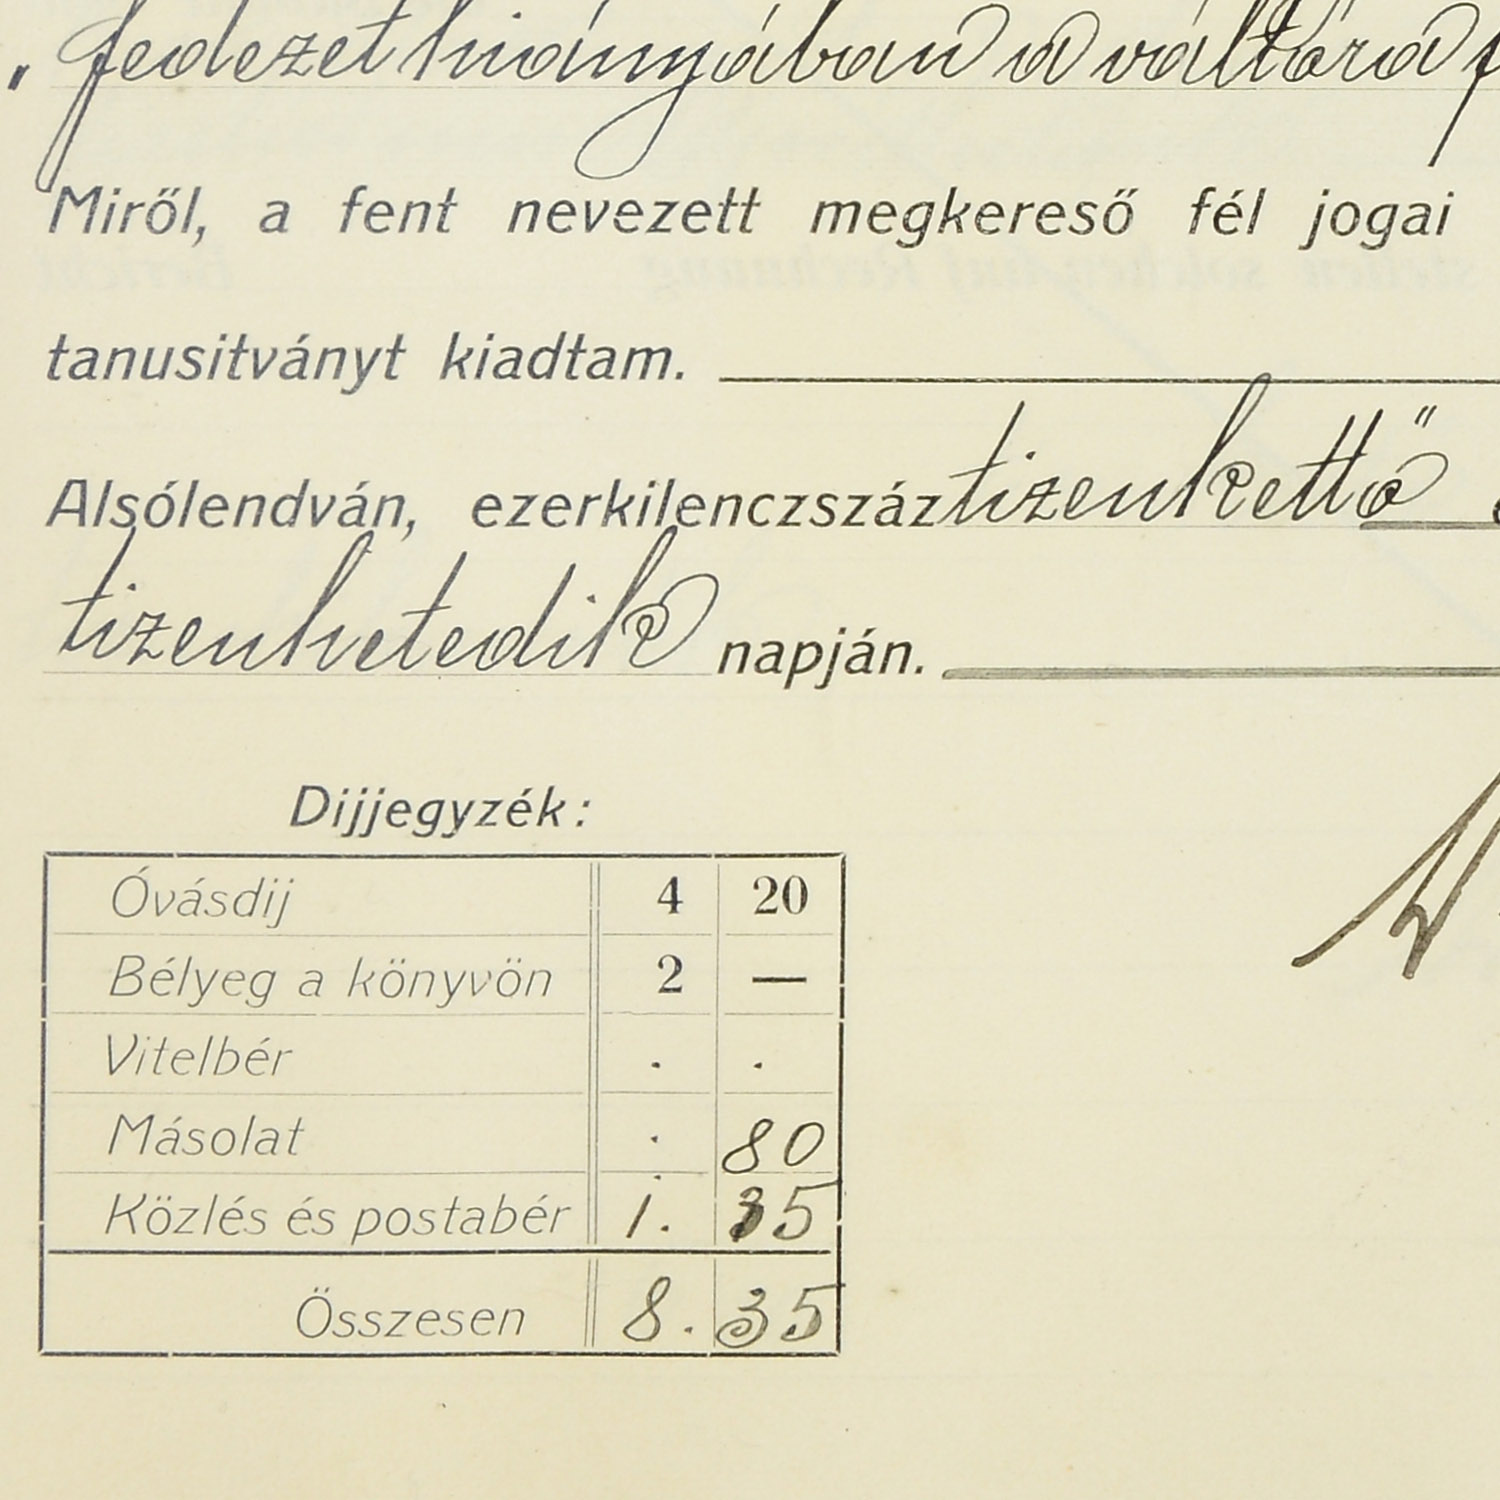 „fedezet hiányában a váltóra
Miről, a fent nevezett megkereső fél jogai
tanusitványt kiadtam.
Alsólendván, ezerkilenczszáztizenkettő
tizenhetedik napján.
Dijjegyzék:
Óvásdij 4 20
Bélyeg a könyvön 2 —
Vitelbér . .
Másolat . 80
Közlés és postabér 1. 35
Összesen 8. 35